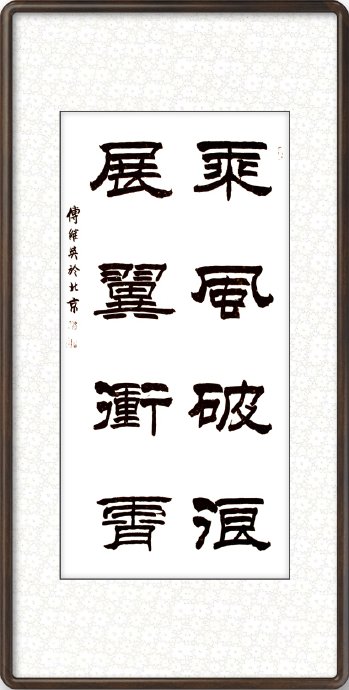 乘風破浪
展翼衝霄
傅維英於北京